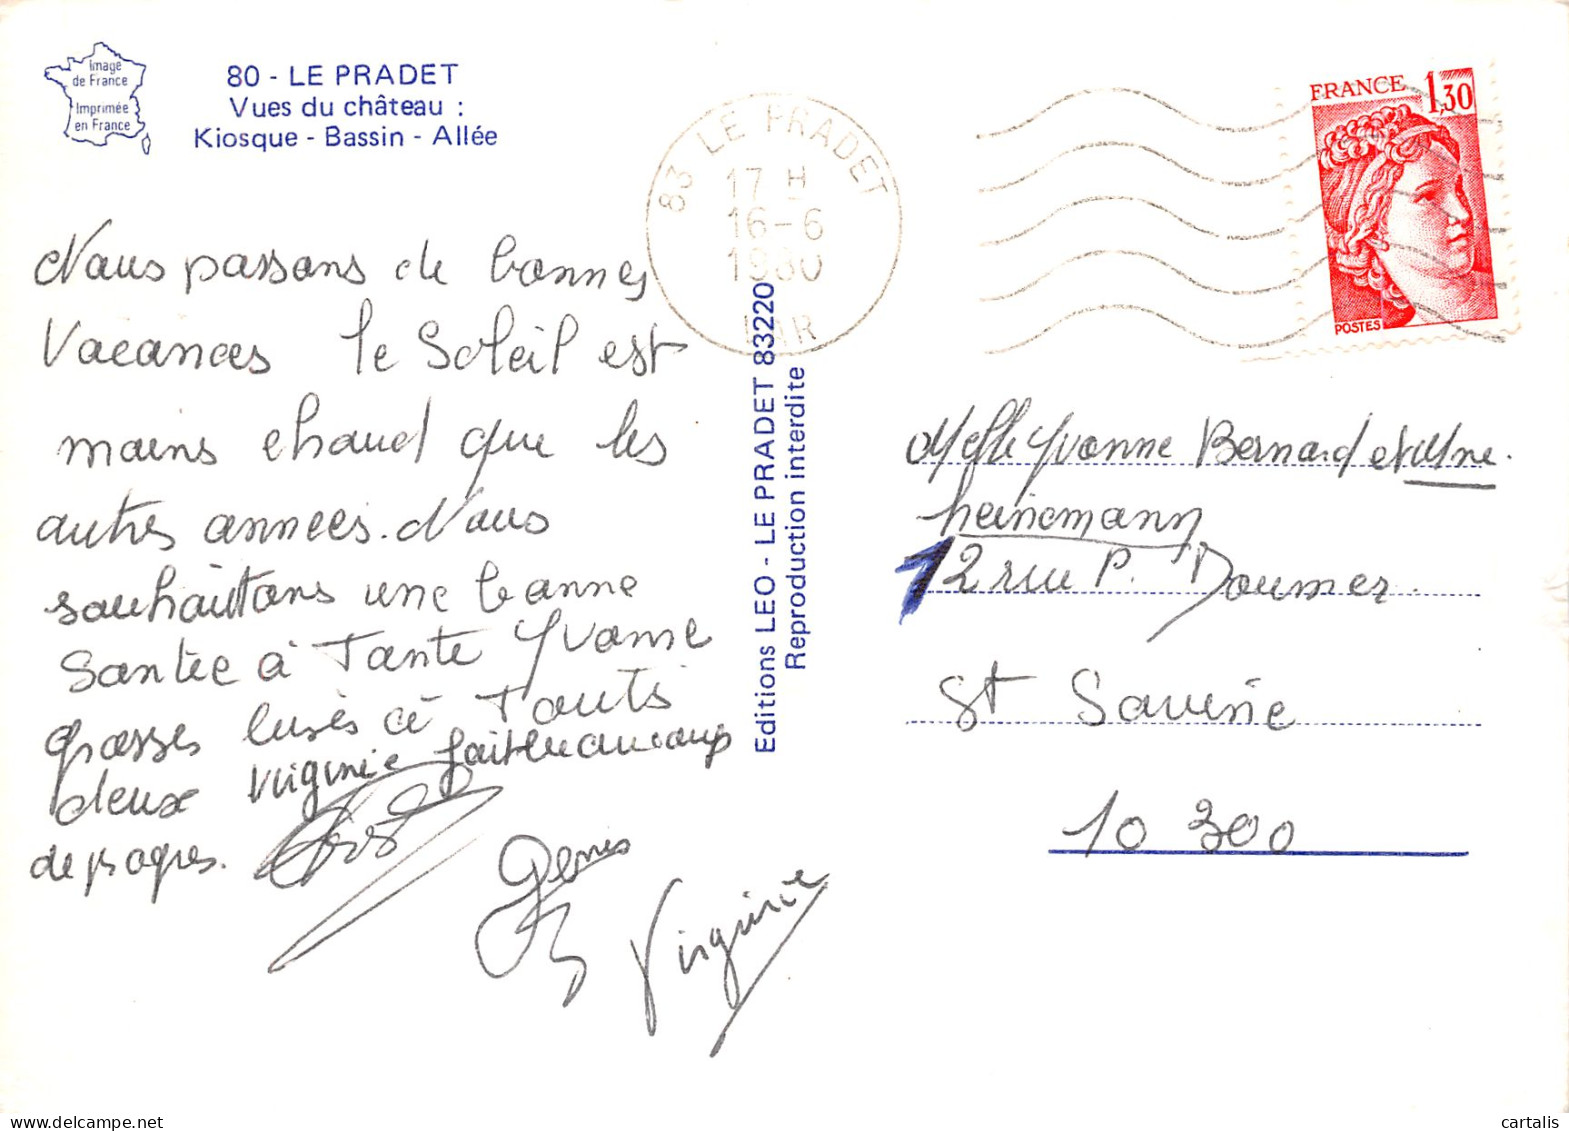 Image
de France
Imprimée
en France
80 - LE PRADET
Vues du château :
Kiosque - Bassin - Allée
83 LE PRADET
17 H
16-6
1980
VAR
FRANCE 1,30
POSTES
Nous passons de bonnes
Vacances le Soleil est
moins chaud que les
autres années. Nous
souhaitons une bonne
Santée à Tante Yvonne
grosses bises à Touts
deux Virginie fait beaucoup
de progres.
Virginie
Editions LEO - LE PRADET 83220
Reproduction interdite
Melle Yvonne Bernard et Mme.
heinemann
12 rue P. Doumer.
St Savine
10 300
cartalis